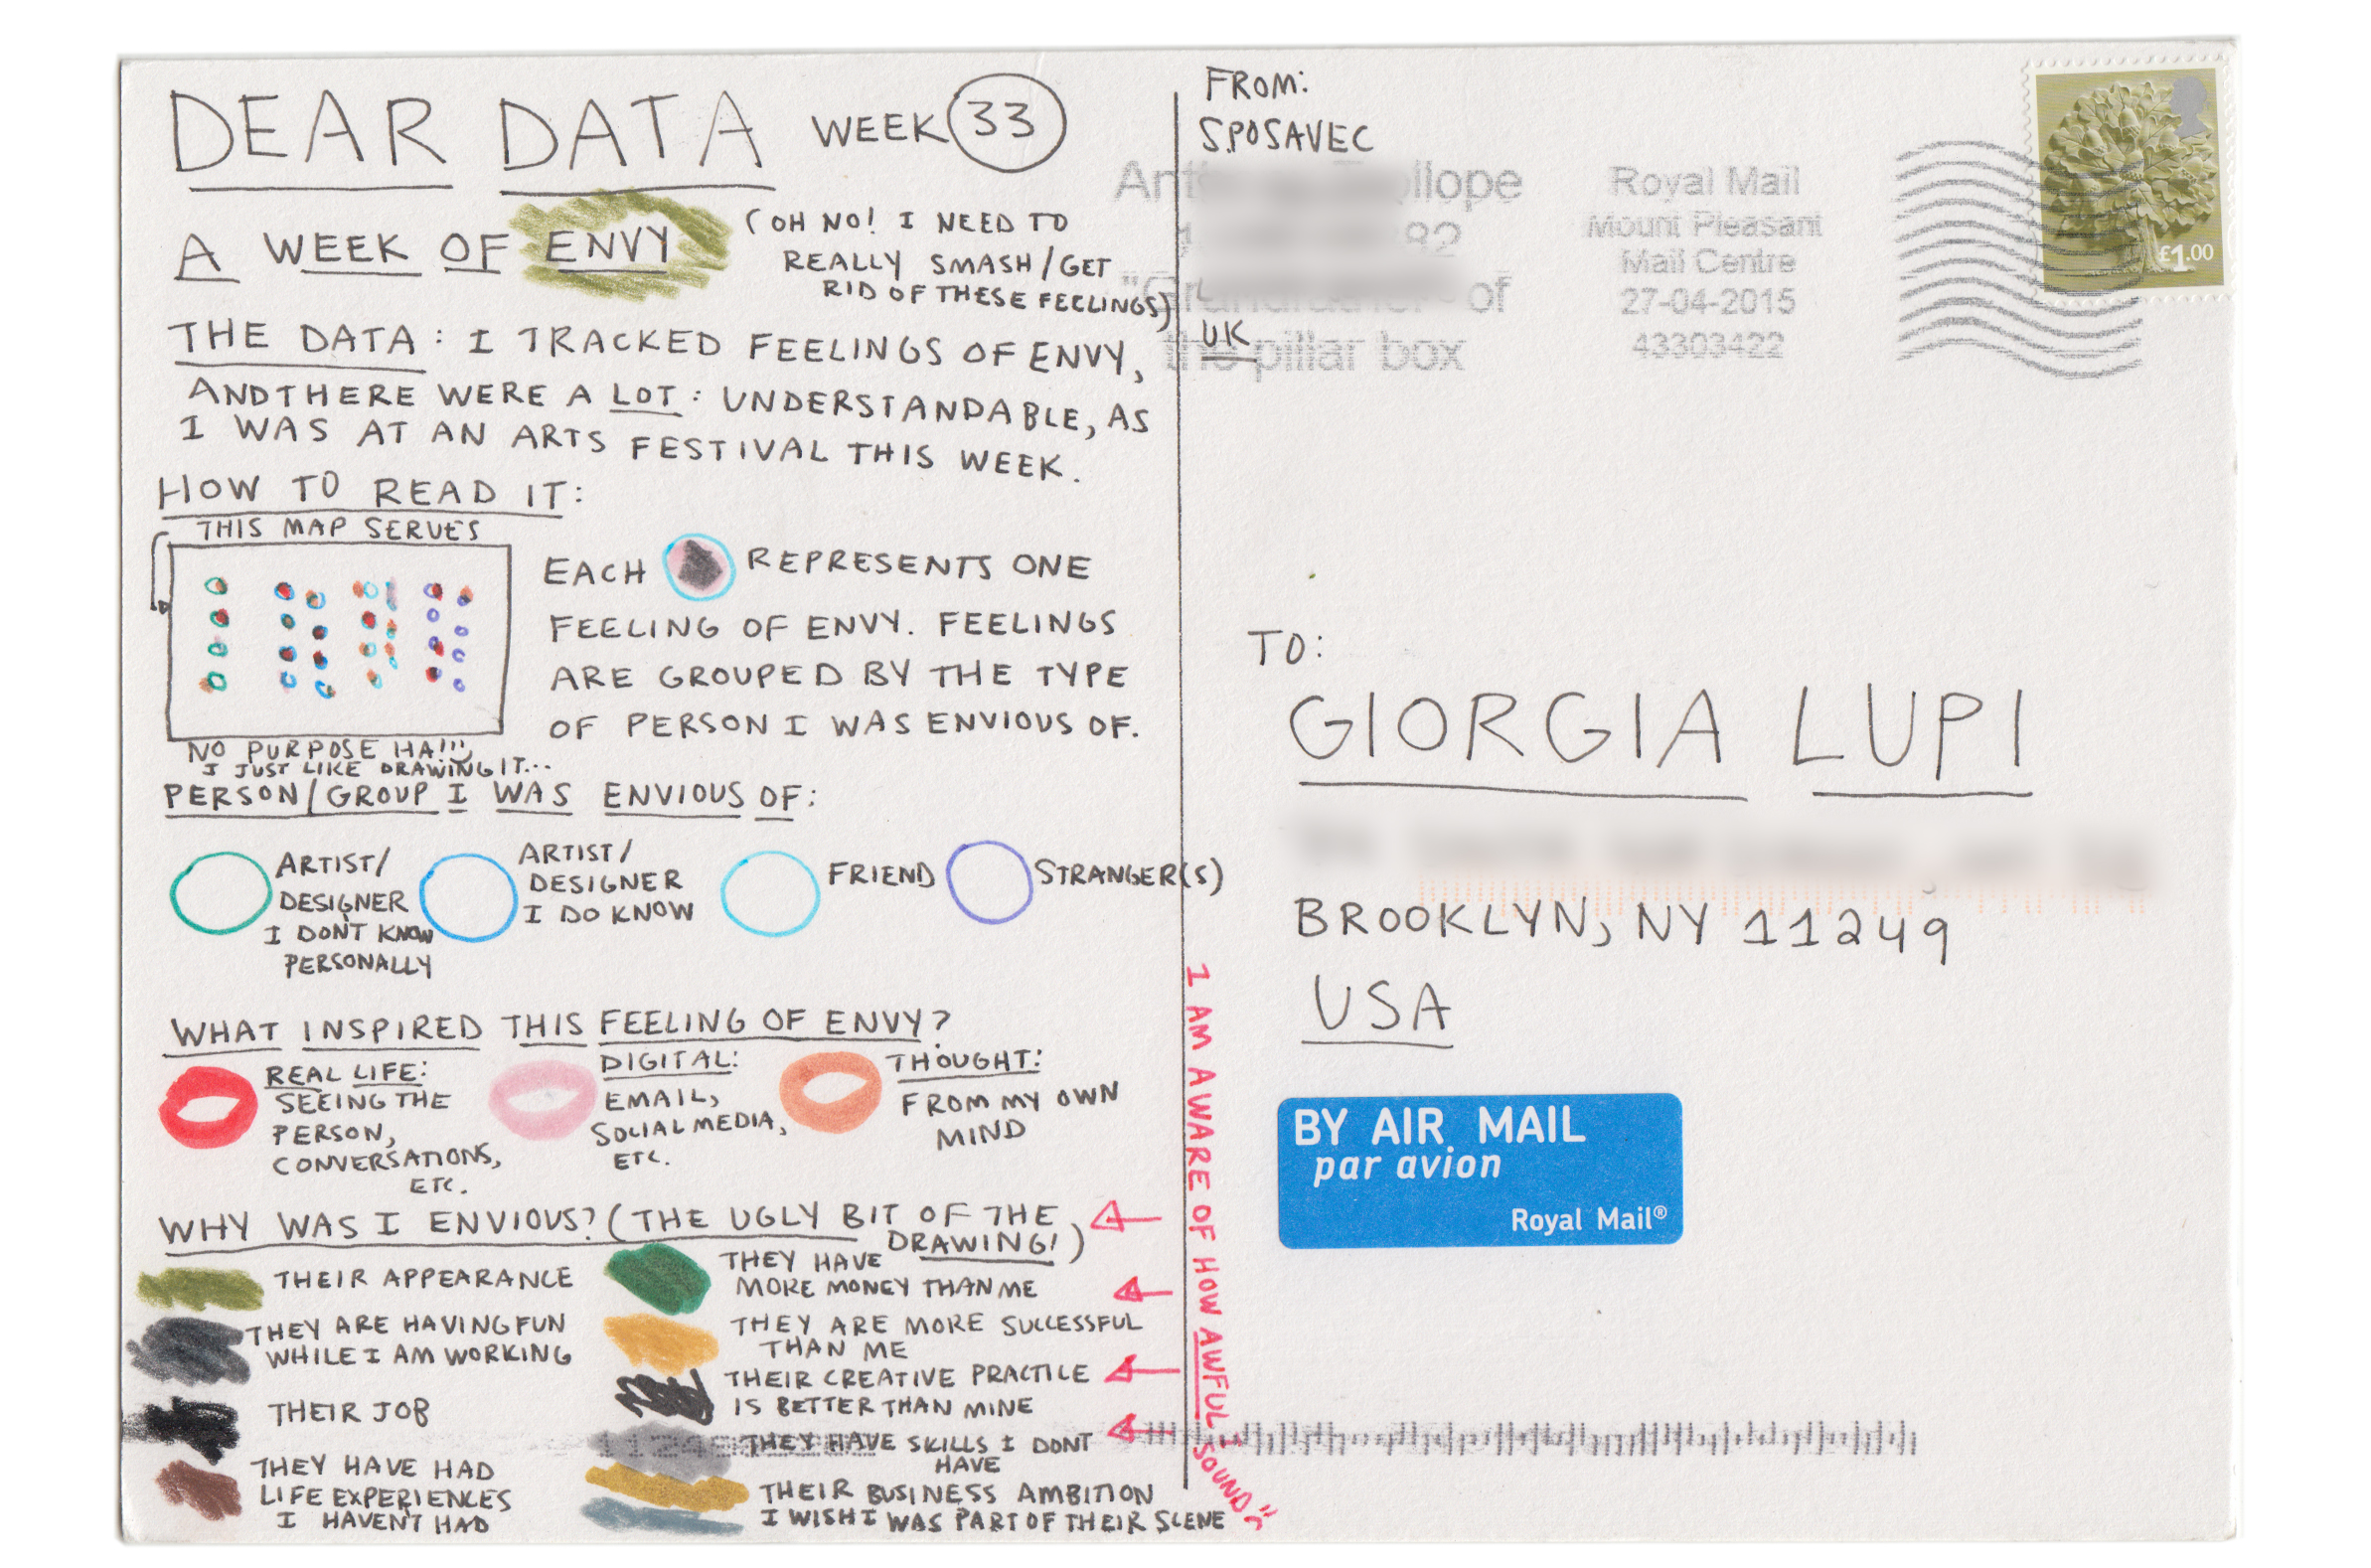 DEAR DATA WEEK 33
A WEEK OF ENVY
(OH NO! I NEED TO
REALLY SMASH/GET
RID OF THESE FEELINGS)
THE DATA: I TRACKED FEELINGS OF ENVY,
AND THERE WERE A LOT: UNDERSTANDABLE, AS
I WAS AT AN ARTS FESTIVAL THIS WEEK.
HOW TO READ IT:
THIS MAP SERVES
NO PURPOSE HA!!!
I JUST LIKE DRAWING IT...
EACH REPRESENTS ONE
FEELING OF ENVY. FEELINGS
ARE GROUPED BY THE TYPE
OF PERSON I WAS ENVIOUS OF.
PERSON/GROUP I WAS ENVIOUS OF:
ARTIST/
DESIGNER
I DON'T KNOW
PERSONALLY
ARTIST/
DESIGNER
I DO KNOW
FRIEND
STRANGER(S)
WHAT INSPIRED THIS FEELING OF ENVY?
REAL LIFE:
SEEING THE
PERSON,
CONVERSATIONS,
ETC.
DIGITAL:
EMAIL,
SOCIAL MEDIA,
ETC.
THOUGHT:
FROM MY OWN
MIND
WHY WAS I ENVIOUS? (THE UGLY BIT OF THE
DRAWING!)
THEIR APPEARANCE
THEY ARE HAVING FUN
WHILE I AM WORKING
THEIR JOB
THEY HAVE HAD
LIFE EXPERIENCES
I HAVEN'T HAD
THEY HAVE
MORE MONEY THAN ME
THEY ARE MORE SUCCESSFUL
THAN ME
THEIR CREATIVE PRACTICE
IS BETTER THAN MINE
THEY HAVE SKILLS I DONT
HAVE
THEIR BUSINESS AMBITION
I WISH I WAS PART OF THEIR SCENE
I AM AWARE OF HOW AWFUL I SOUND
FROM:
S.POSAVEC
UK
of
the pillar box
Royal Mail
Mount Pleasant
Mail Centre
27-04-2015
43303422
£1.00
TO:
GIORGIA LUPI
BROOKLYN, NY 11249
USA
BY AIR MAIL
par avion
Royal Mail®